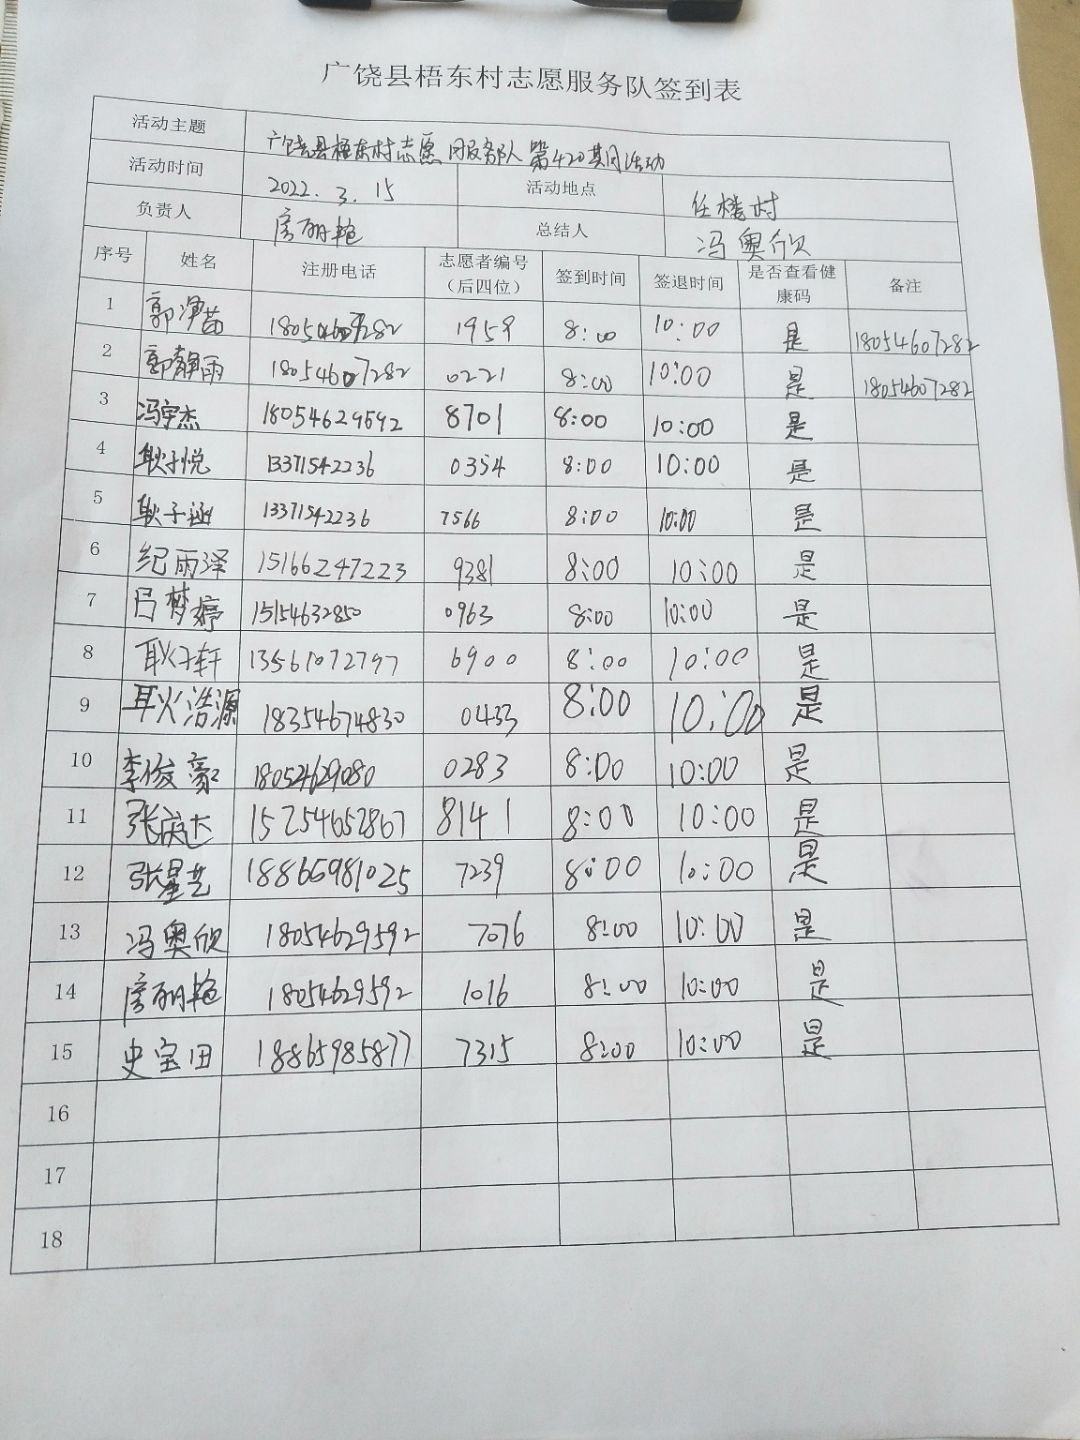 广饶县梧东村志愿服务队签到表
活动主题 广饶县梧东村志愿服务队第420期活动
活动时间 2022.3.15 活动地点 任楼村
负责人 房丽艳 总结人 冯奥欣
序号 姓名 注册电话 志愿者编号（后四位） 签到时间 签退时间 是否查看健康码 备注
1 郭净苗 18054607282 1959 8:00 10:00 是 18054607282
2 郭静雨 18054607282 0221 8:00 10:00 是 18054607282
3 冯宇杰 18054629592 8701 8:00 10:00 是
4 耿子悦 13371542236 0354 8:00 10:00 是
5 耿子涵 13371542236 7566 8:00 10:00 是
6 纪雨泽 15166247223 9381 8:00 10:00 是
7 吕梦婷 15154632850 0963 8:00 10:00 是
8 耿子轩 13561072797 6900 8:00 10:00 是
9 耿浩源 18354674830 0433 8:00 10:00 是
10 李俊豪 18054629080 0283 8:00 10:00 是
11 张庆达 15254652867 8141 8:00 10:00 是
12 张星艺 18866981025 7239 8:00 10:00 是
13 冯奥欣 18054629592 7076 8:00 10:00 是
14 房丽艳 18054629592 1016 8:00 10:00 是
15 史宝田 18865985877 7315 8:00 10:00 是
16
17
18